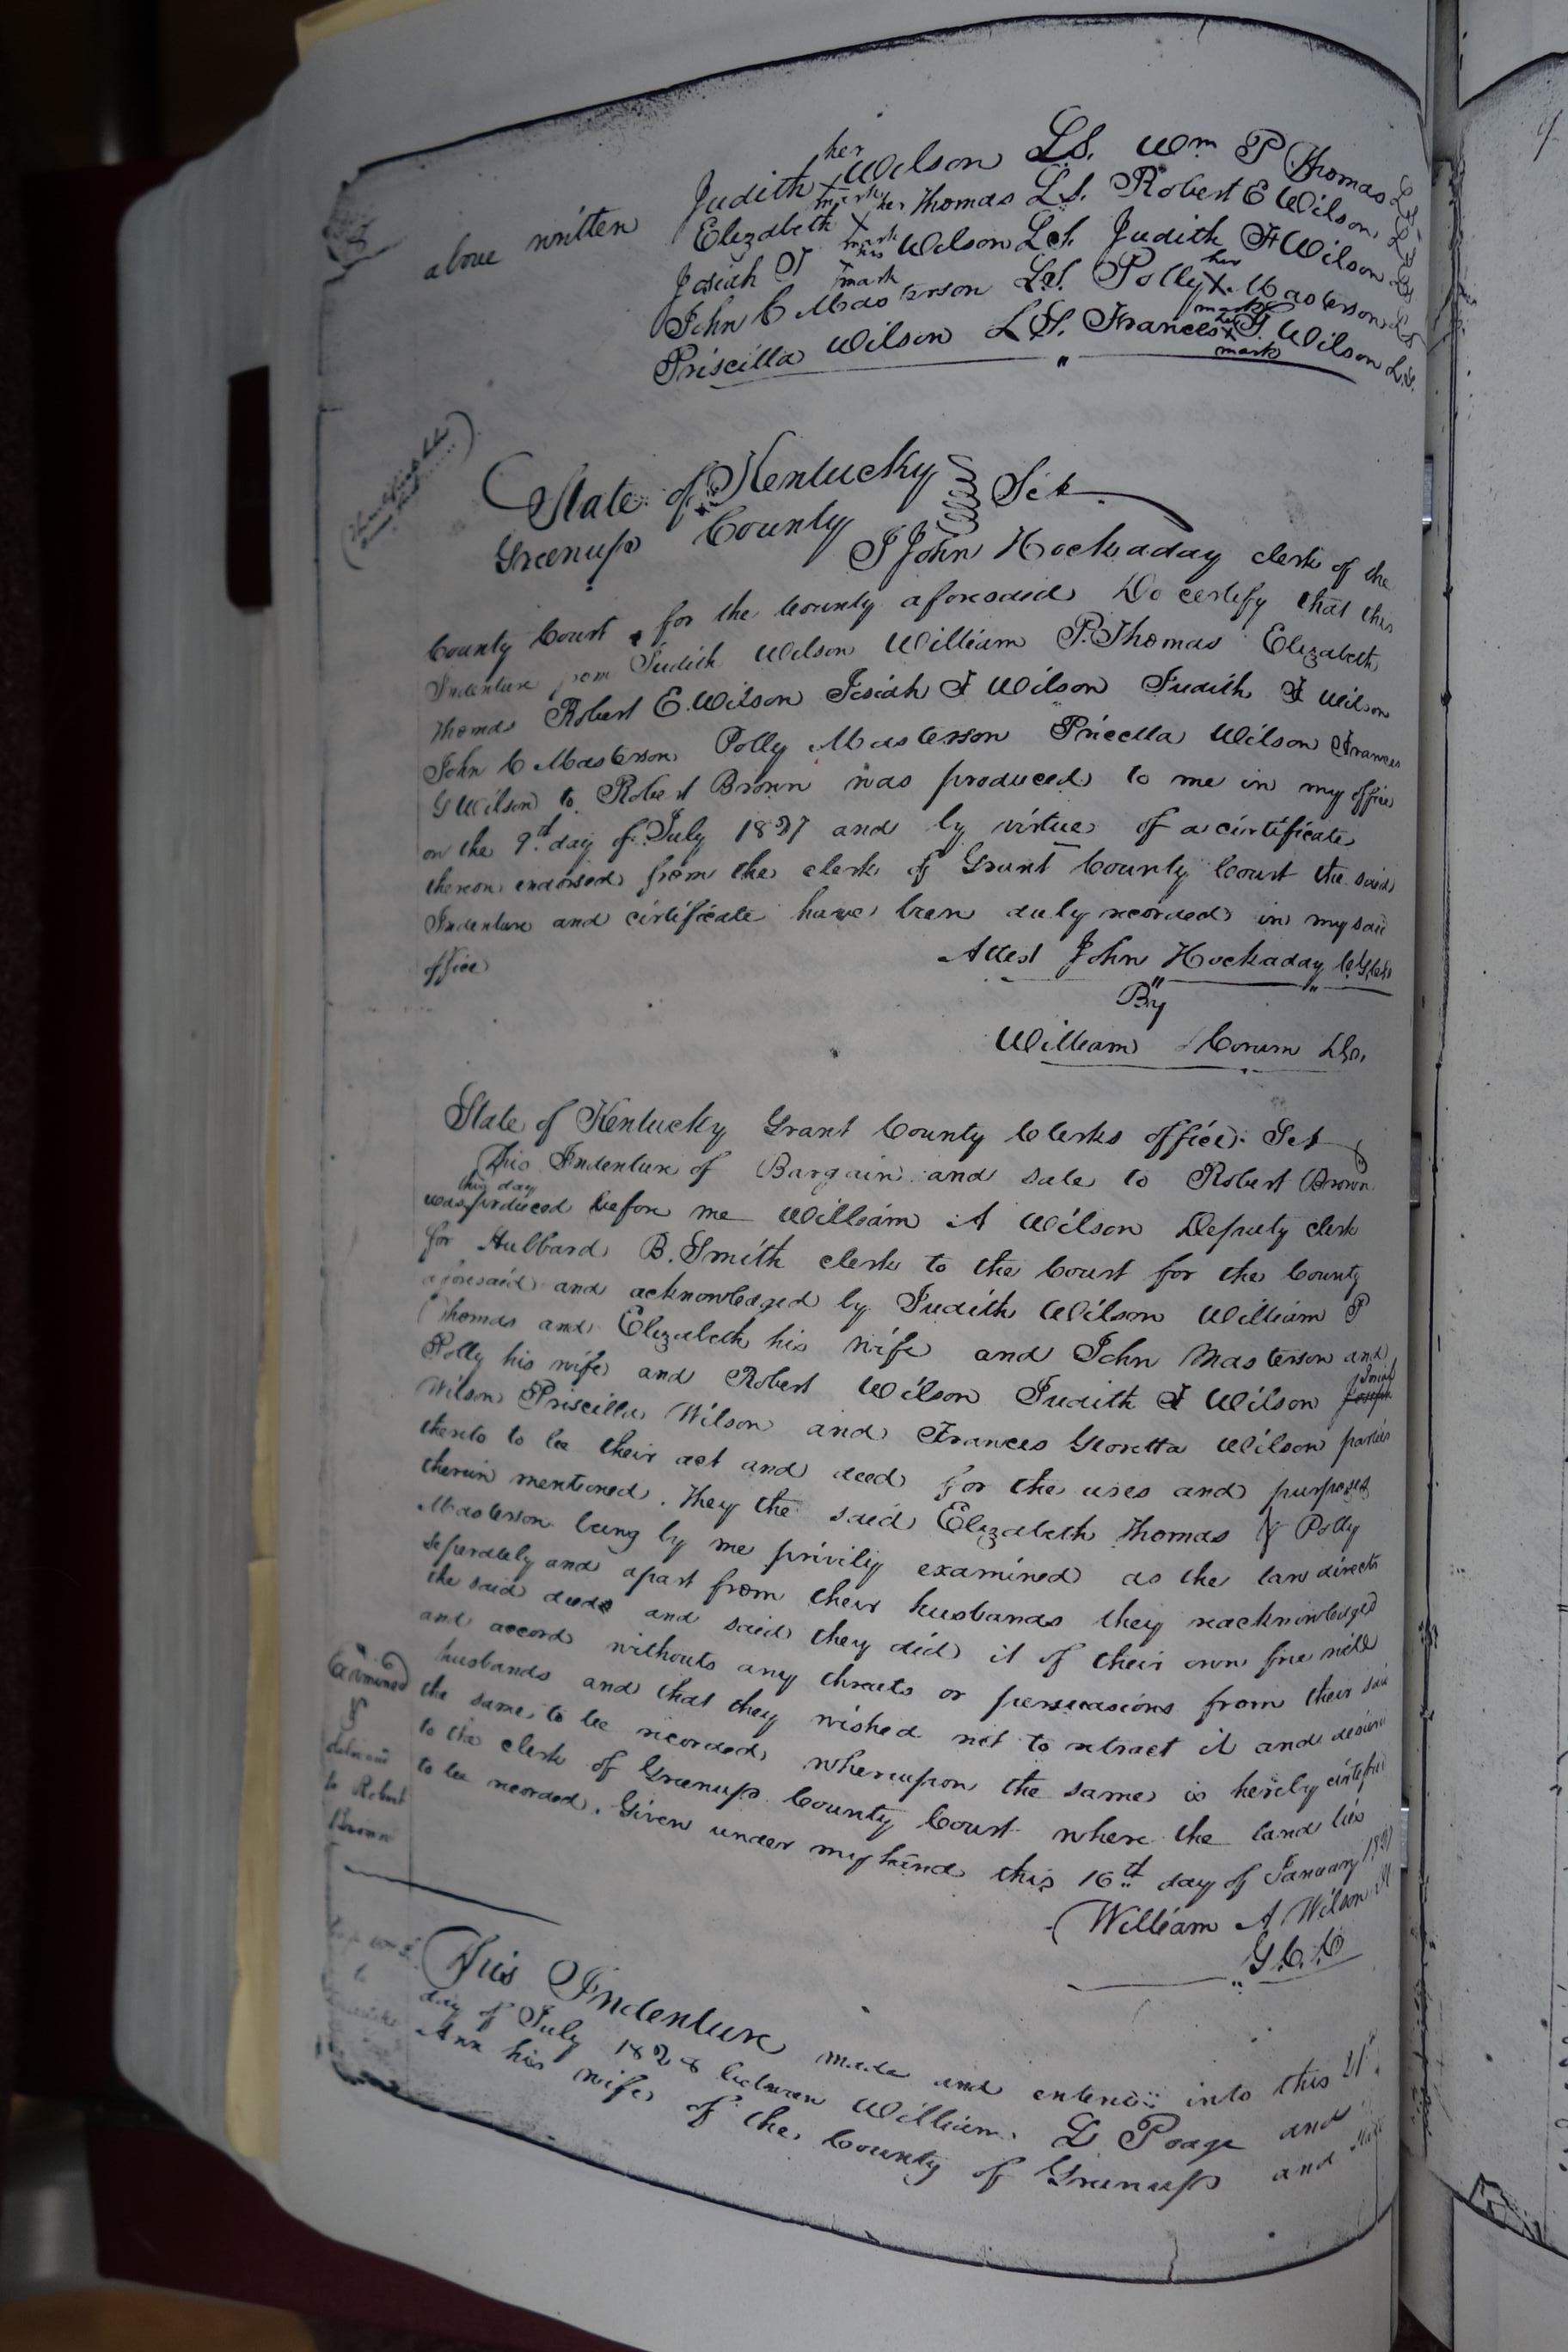 above written
Judith her X mark Wilson L.S. Wm P Thomas L.S.
Elizabeth her X mark Thomas L.S. Robert E Wilson L.S.
Josiah T his X mark Wilson L.S. Judith F Wilson L.S.
John C Masterson L.S. Polly her X mark Masterson L.S.
Priscilla Wilson L.S. Frances her X mark G. Wilson L.S.
State of Kentucky Sct
Greenup County
I John Hockaday clerk of the
County Court for the County aforesaid Do certify that this
Indenture from Judith Wilson William P. Thomas Elizabeth
Thomas Robert E. Wilson Josiah F Wilson Judith F Wilson
John C Masterson Polly Masterson Pricella Wilson Frances
G Wilson to Robert Brown was produced to me in my office
on the 9th day of July 1827 and by virtue of a certificate
thereon endorsed from the clerk of Grant County Court the said
Indenture and certificate have been duly recorded in my said
office
Attest John Hockaday
By
William Corum
State of Kentucky Grant County Clerks office Sct
This Indenture of Bargain and sale to Robert Brown
was this day produced before me William A Wilson Deputy clerk
for Hubbard B. Smith clerk to the Court for the County
aforesaid and acknowledged by Judith Wilson William P
Thomas and Elizabeth his wife and John Masterson and
Polly his wife and Robert Wilson Judith F Wilson Josiah
Wilson Priscilla Wilson and Frances Georetta Wilson parties
thereto to be their act and deed for the uses and purposes
therein mentioned. They the said Elizabeth Thomas & Polly
Masterson being by me privily examined as the law directs
seperately and apart from their husbands they reacknowledged
the said deed and said they did it of their own free will
and accord without any threats or persuasions from their said
husbands and that they wished not to retract it and desired
the same to be recorded whereupon the same is hereby certified
to the clerk of Greenup County Court where the land lies
to be recorded. Given under my hand this 16th day of January
William A Wilson
G.C.C
Examined
&
delivered
to Robert
Brown
This Indenture made and entered into this
day of July 1828 between William L Poage and
Ann his wife of the County of Greenup and